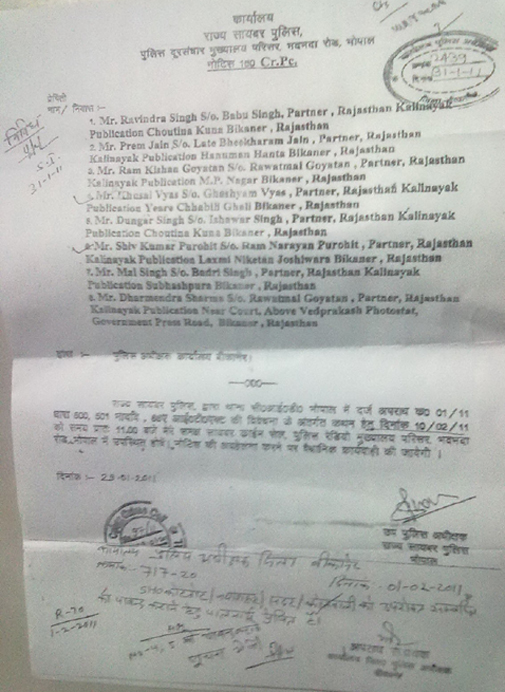 कार्यालय
राज्य सायबर पुलिस,
पुलिस दूरसंचार मुख्यालय परिसर, भदभदा रोड, भोपाल
नोटिस 160 Cr.Pc.
2439
31-1-11
प्रेषिती
नाम/ निवास :-
31-1-11
1. Mr. Ravindra Singh S/o. Babu Singh, Partner , Rajasthan Kalinayak
Publication Choutina Kuna Bikaner , Rajasthan
2. Mr. Prem Jain S/o. Late Bheekharam Jain , Partner, Rajasthan
Kalinayak Publication Hanuman Hanta Bikaner , Rajasthan
3. Mr. Ram Kishan Goyatan S/o. Rawatmal Goyatan , Partner, Rajasthan
Kalinayak Publication M.P. Nagar Bikaner , Rajasthan
4. Mr. Khusal Vyas S/o. Ghashyam Vyas , Partner, Rajasthan Kalinayak
Publication Years Chhabili Ghati Bikaner , Rajasthan
5. Mr. Dungar Singh S/o. Ishawar Singh , Partner, Rajasthan Kalinayak
Publication Choutina Kuna Bikaner , Rajasthan
6. Mr. Shiv Kumar Purohit S/o. Ram Narayan Purohit , Partner, Rajasthan
Kalinayak Publication Laxmi Niketan Joshiwara Bikaner , Rajasthan
7. Mr. Mal Singh S/o. Badri Singh , Partner, Rajasthan Kalinayak
Publication Subhashpura Bikaner , Rajasthan
8. Mr. Dharmendra Sharma S/o. Rawatmal Goyatan , Partner, Rajasthan
Kalinayak Publication Near Court, Above Vedprakash Photostat,
Government Press Road, Bikaner , Rajasthan
द्वारा :- पुलिस अधीक्षक कार्यालय बीकानेर।
—000—
राज्य सायबर पुलिस, द्वारा थाना सी०आई०डी० भोपाल में दर्ज अपराध क्र० 01/11
धारा 500, 501 भादवि , 66ए आई०टी०एक्ट की विवेचना के अंतर्गत कथन हेतु दिनांक 10/02/11
को समय प्रातः 11.00 बजे मेरे समक्ष सायबर क्राईम सेल, पुलिस रेडियो मुख्यालय परिसर, भदभदा
रोड, भोपाल में उपस्थित होवें। नोटिस की अवहेलना करने पर वैधानिक कार्यवाही की जायेगी ।
दिनांक :- 29-01-2011
उप पुलिस अधीक्षक
राज्य सायबर पुलिस
भोपाल
कार्यालय पुलिस अधीक्षक जिला बीकानेर
क्रमांक- 717-20 दिनांक- 01-02-2011
R-70
1-2-2011